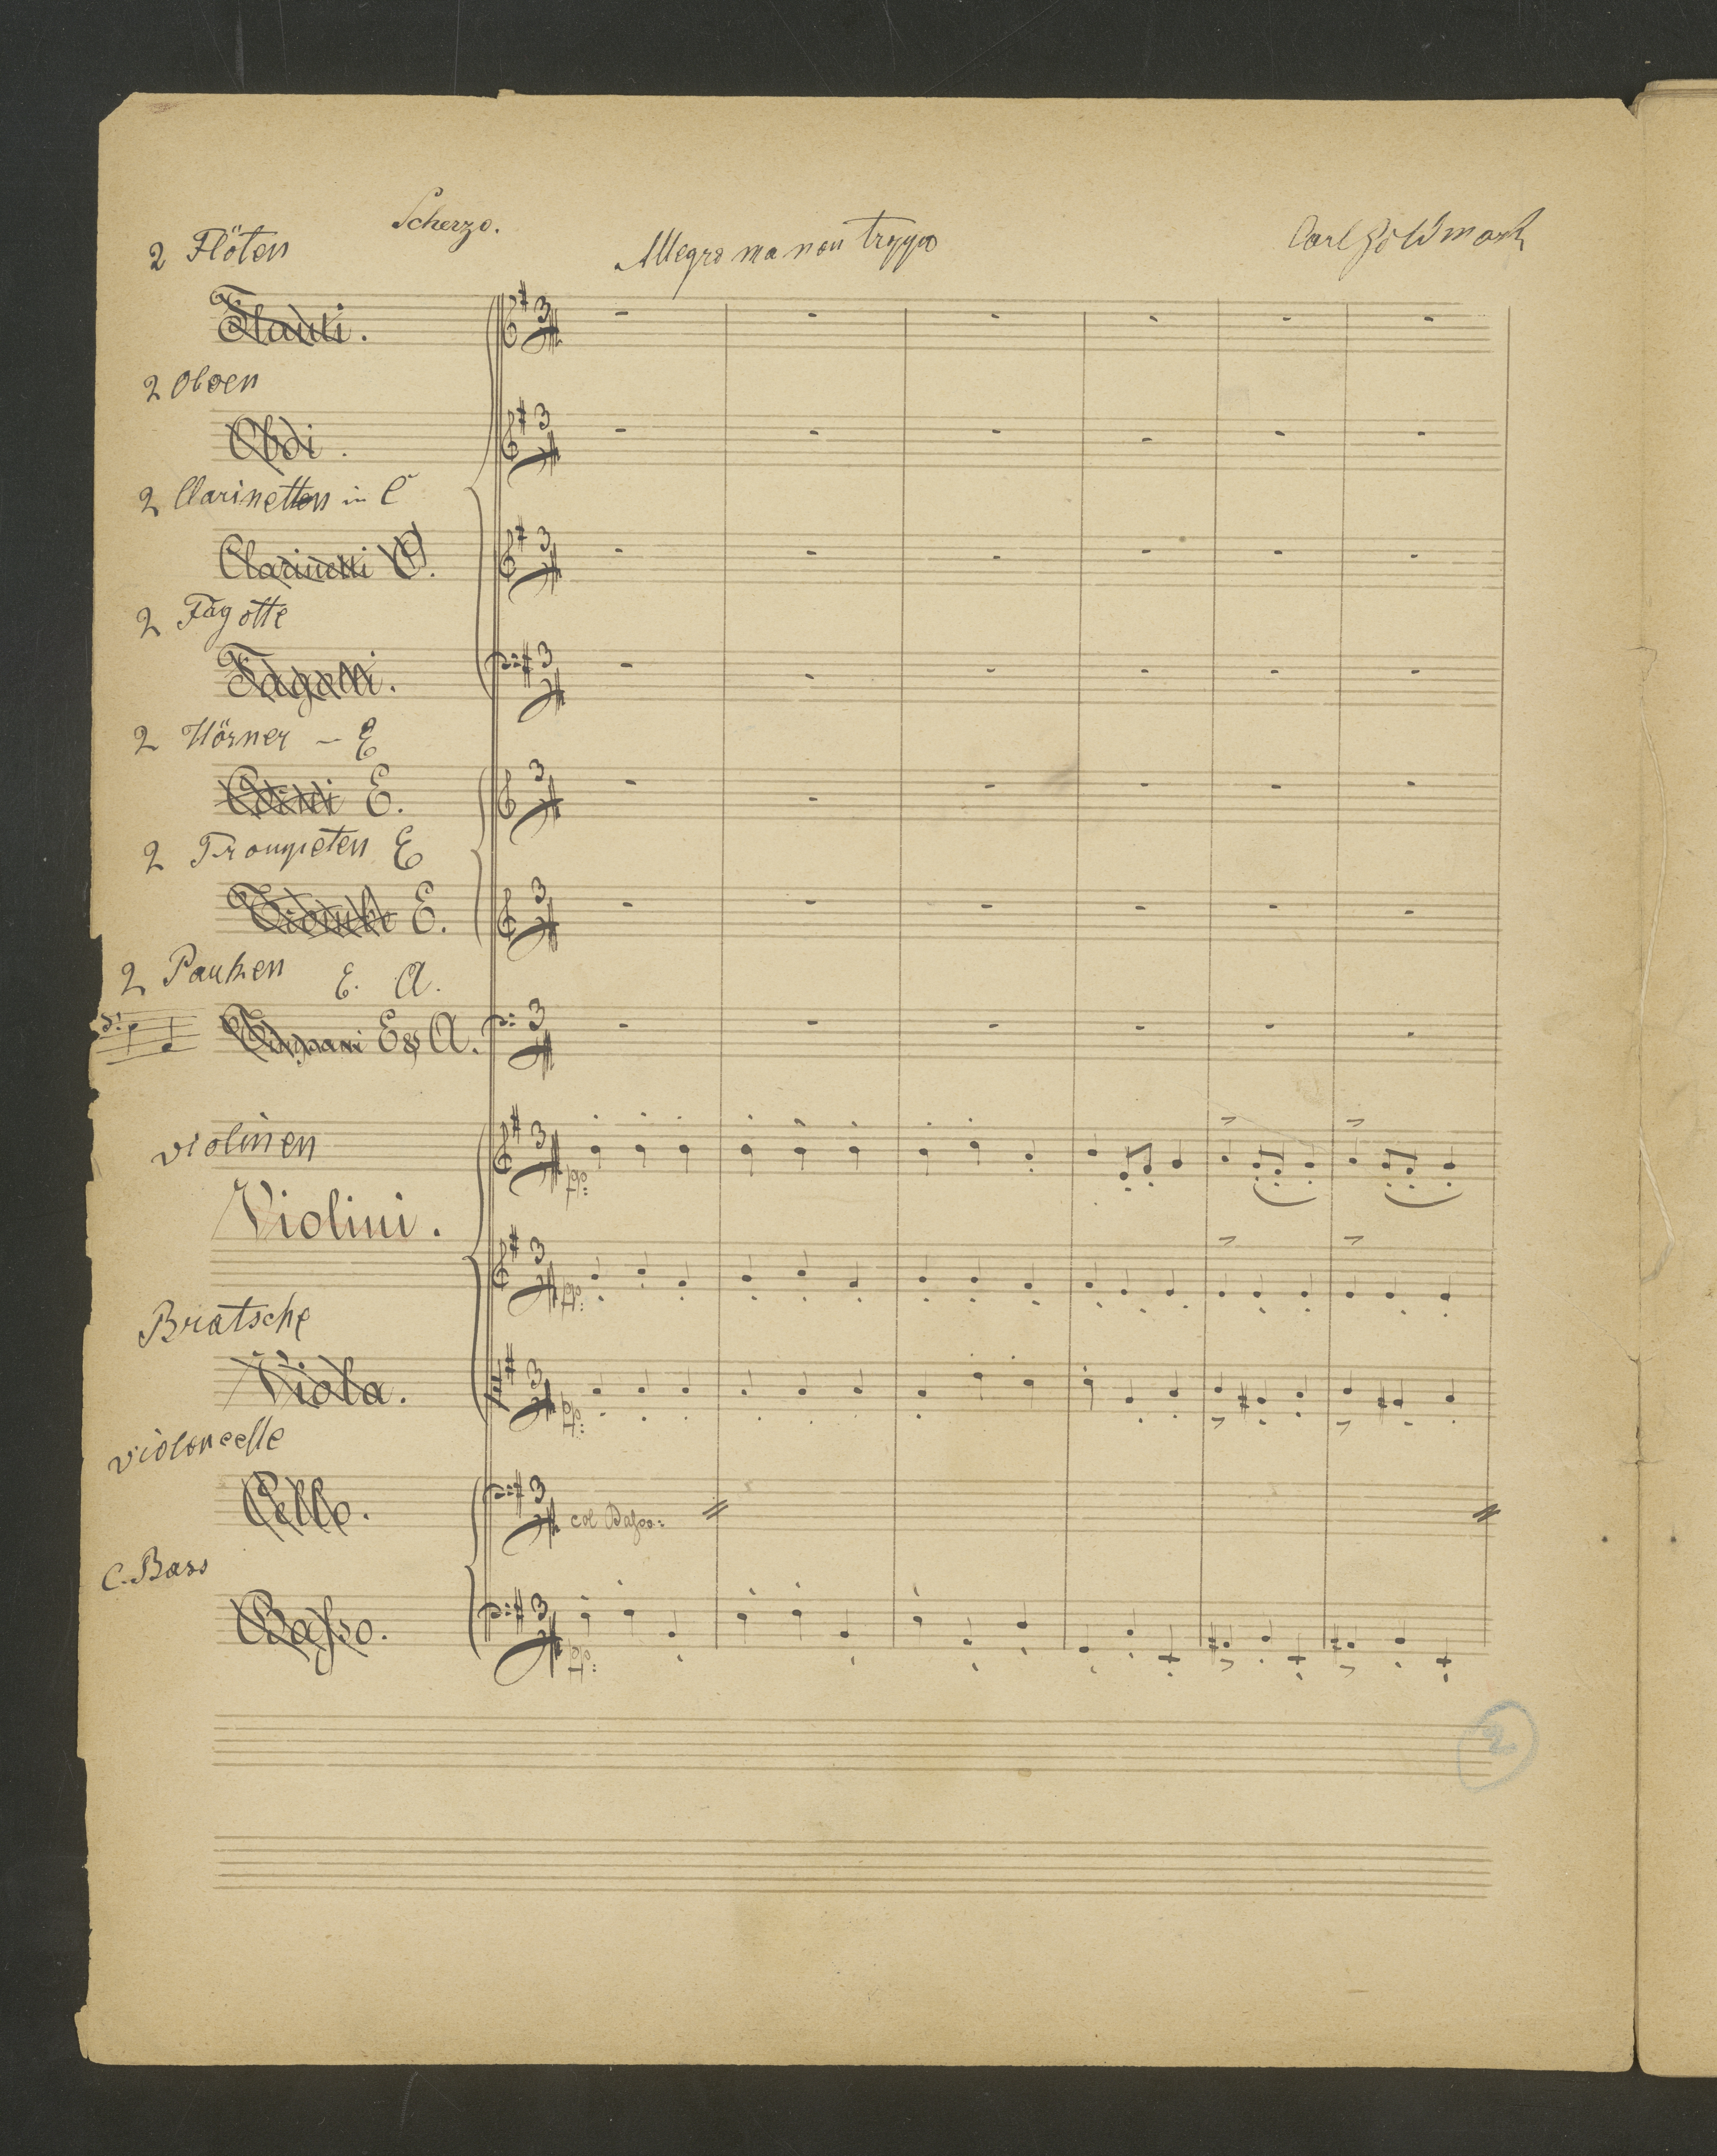 Scherzo.
Allegro ma non troppo
Carl Goldmark
2 Flöten
Flauti.
2 Oboen
Oboi.
2 Clarinetten in C
Clarinetti C.
2 Fagotte
Fagotti.
2 Hörner – E
Corni E.
2 Trompeten E
Trombe E.
2 Pauken E. A.
Timpani E & A.
Violinen
Violini.
Bratsche
Viola.
Violoncelle
Cello.
col Basso.
C. Bass
Basso.
2